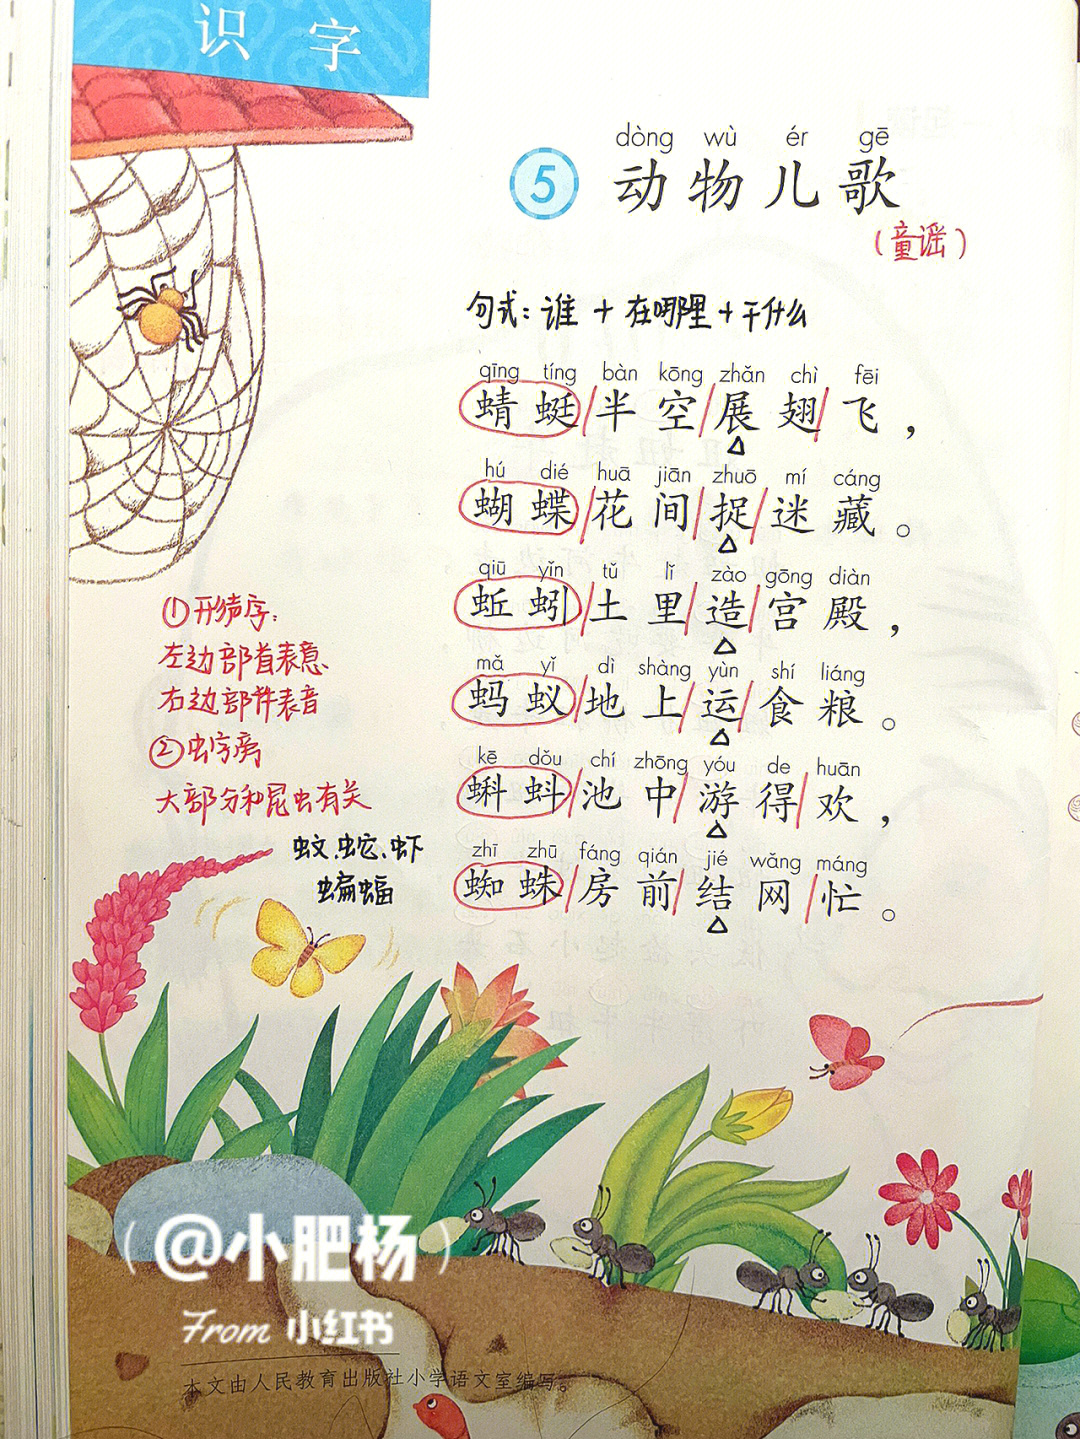 识 字
dòng wù ér gē
5 动物儿歌
(童谣)
句式：谁 + 在哪里 + 干什么
qīng tíng bàn kōng zhǎn chì fēi
蜻蜓/半空/展翅/飞，
hú dié huā jiān zhuō mí cáng
蝴蝶/花间/捉/迷藏。
qiū yǐn tǔ lǐ zào gōng diàn
蚯蚓/土里/造/宫殿，
mǎ yǐ dì shàng yùn shí liáng
蚂蚁/地上/运/食粮。
kē dǒu chí zhōng yóu de huān
蝌蚪/池中/游得/欢，
zhī zhū fáng qián jié wǎng máng
蜘蛛/房前/结网/忙。
①形声字：
左边部首表意
右边部件表音
②虫字旁
大部分和昆虫有关
蚊、蛇、虾
蝙蝠
@小肥杨
From 小红书
本文由人民教育出版社小学语文室编写。